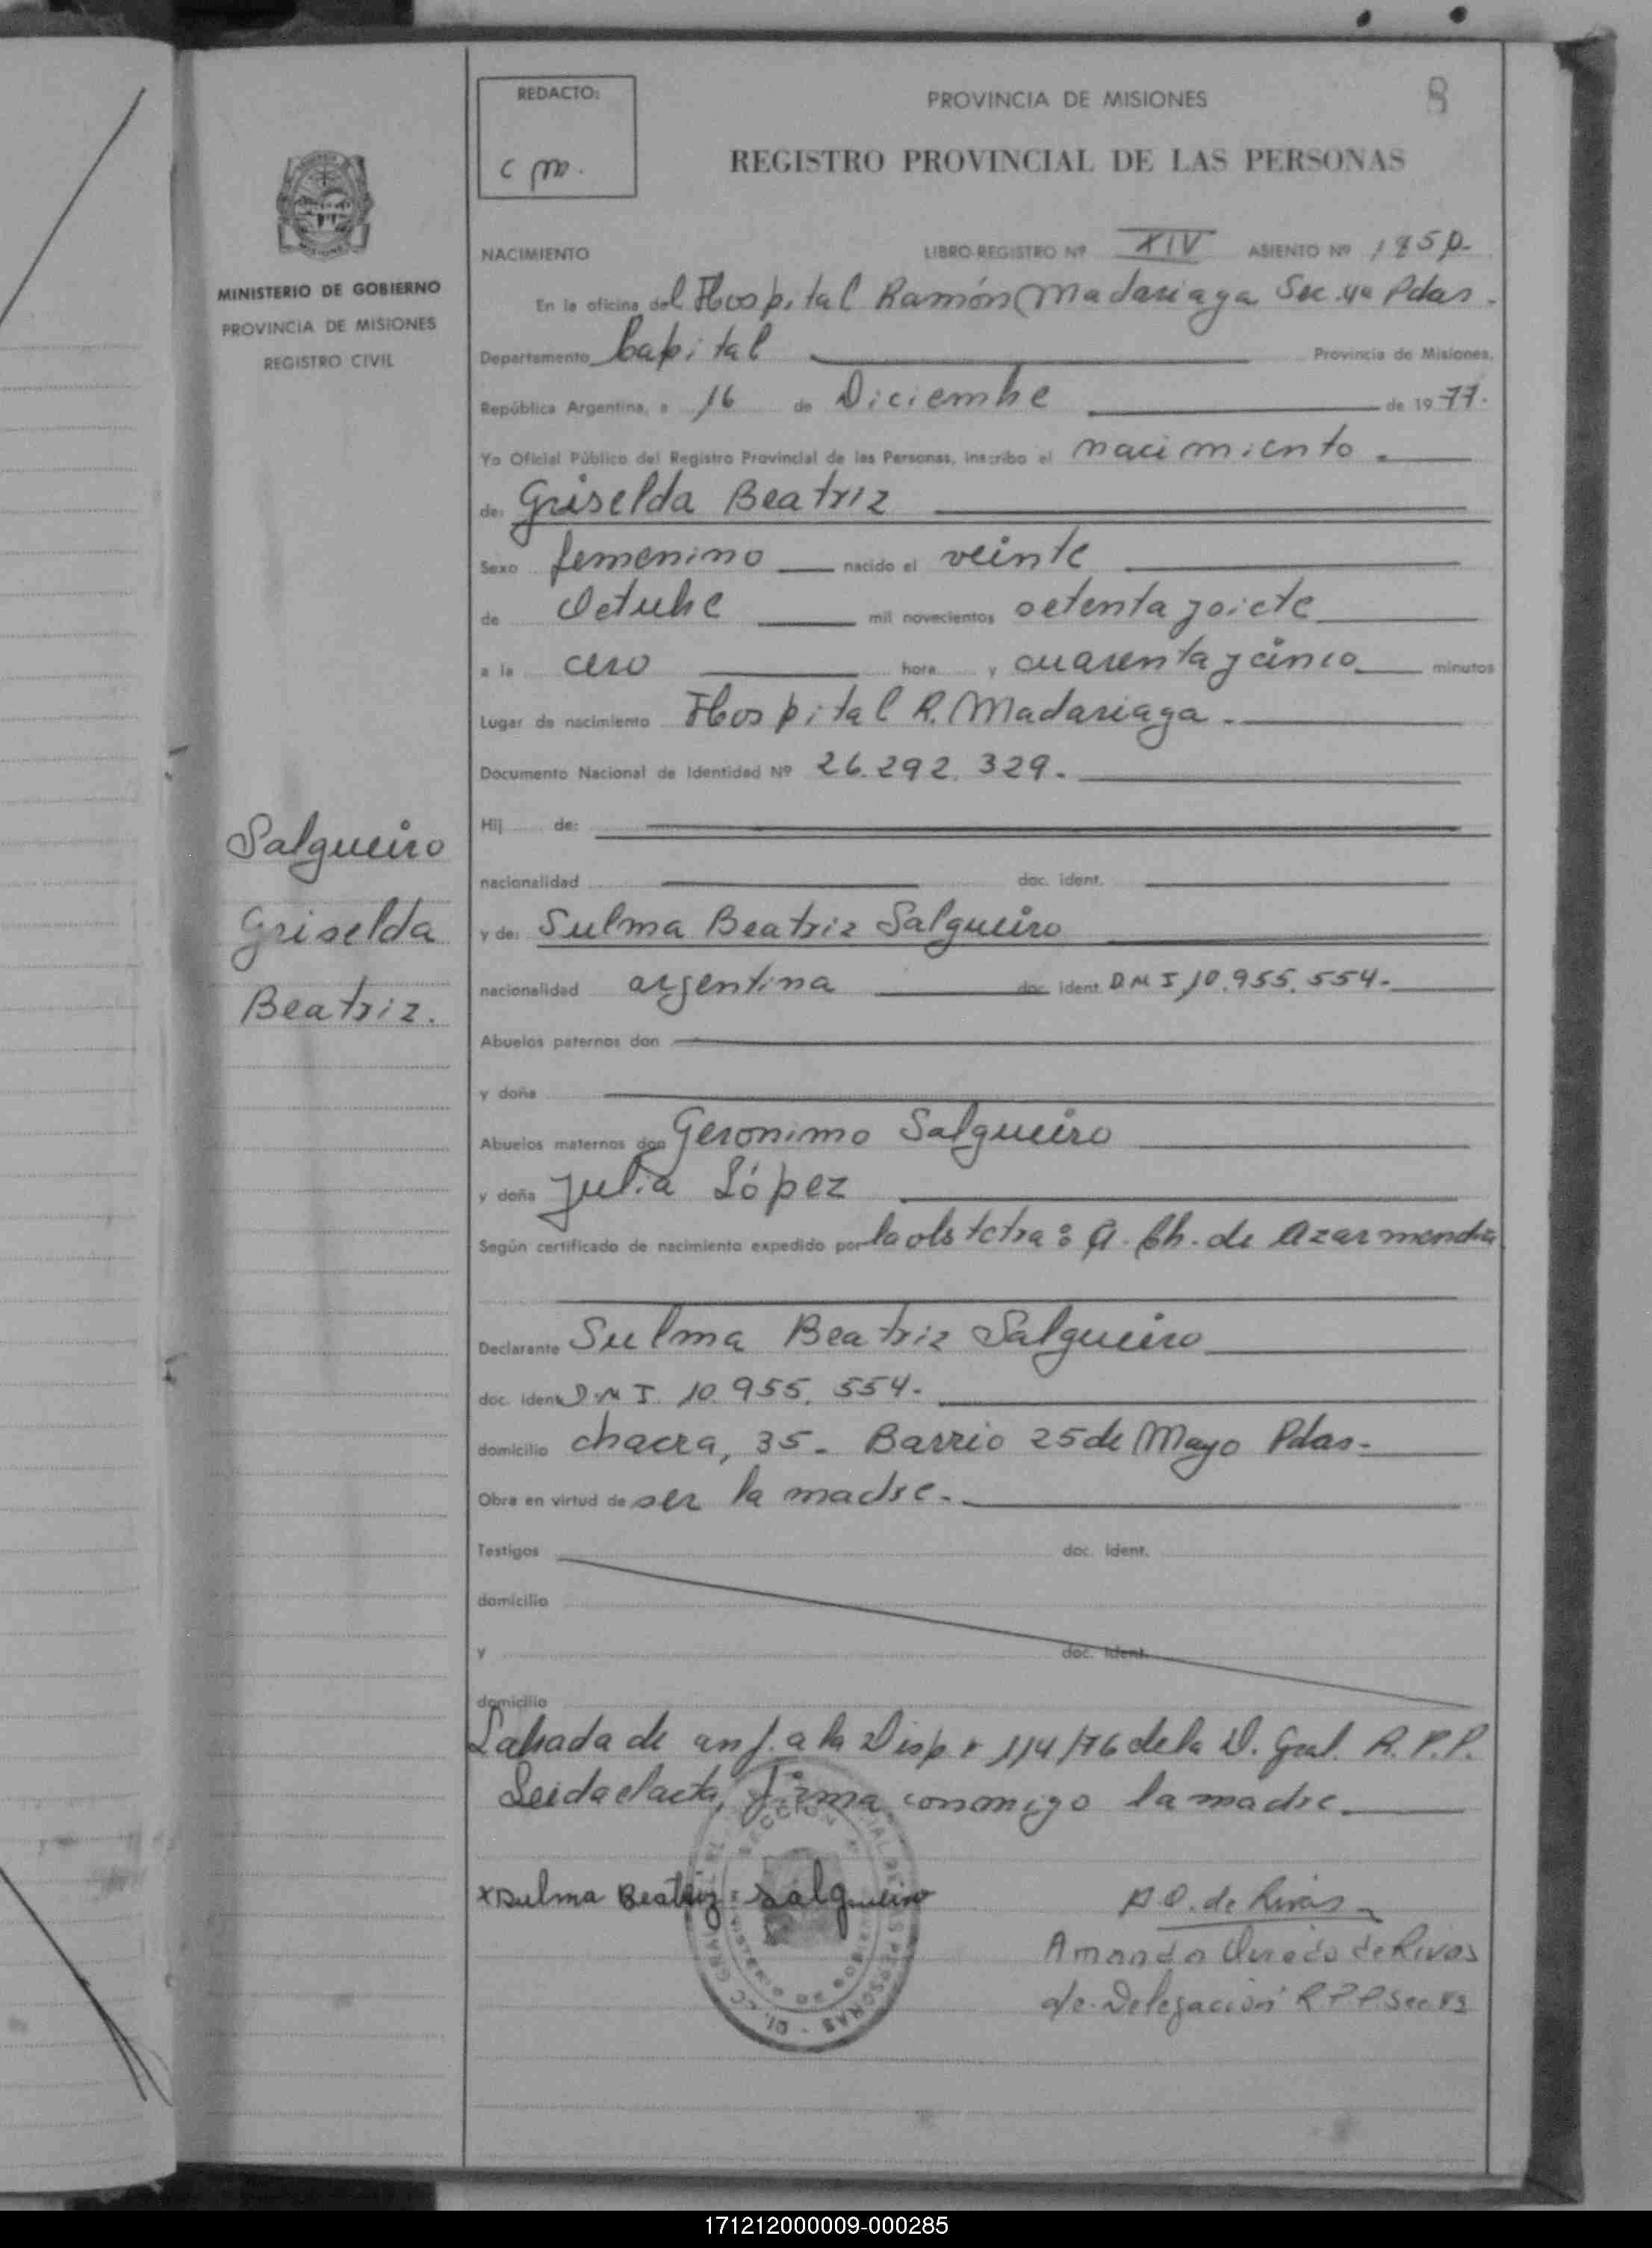 8
REDACTO:
PROVINCIA DE MISIONES
c m.
REGISTRO PROVINCIAL DE LAS PERSONAS
NACIMIENTO LIBRO-REGISTRO Nº XIV ASIENTO Nº
MINISTERIO DE GOBIERNO
PROVINCIA DE MISIONES
REGISTRO CIVIL
En la oficina del Hospital Ramón Madariaga Sec. 4a Pdas.
Departamento Capital Provincia de Misiones,
República Argentina, a 16 de Diciembre de 1977.
Yo Oficial Público del Registro Provincial de las Personas, inscribo el nacimiento.
de: Griselda Beatriz
Sexo femenino nacido el veinte
de Octubre mil novecientos setenta y siete
a la cero hora y cuarenta y cinco minutos
Lugar de nacimiento Hospital R. Madariaga.
Documento Nacional de Identidad Nº 26.292.329.
Salgueiro
Griselda
Beatriz.
Hij de:
nacionalidad doc. ident.
y de: Sulma Beatriz Salgueiro
nacionalidad argentina doc. ident. DNI 10.955.554.
Abuelos paternos don
y doña
Abuelos maternos don Geronimo Salgueiro
y doña Julia López
Según certificado de nacimiento expedido por la obstetra: A. Ch. de Azarmendia
Declarante Sulma Beatriz Salgueiro
doc. ident DNI. 10.955.554.
domicilio chacra, 35. Barrio 25 de Mayo Pdas.
Obra en virtud de ser la madre.
Testigos doc. ident.
domicilio
y doc. ident.
domicilio
Labrada de conf. a la Disp. 114/76 de la D. Gral. R.P.P.
Leida el acta, firma conmigo la madre.
x Sulma Beatriz Salgueiro
A O. de Rivas
Amanda Oviedo de Rivas
Delegación R.P.P. Sec.
SECCION
171212000009-000285